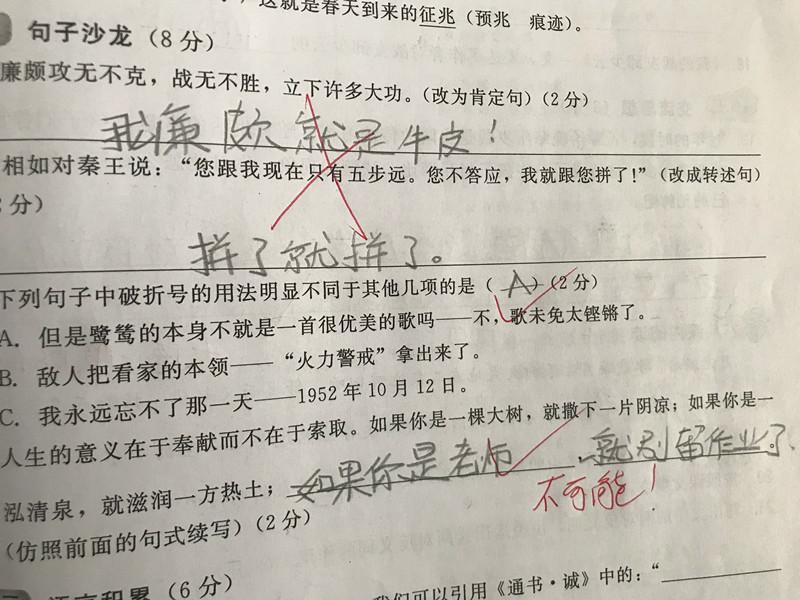 这就是春天到来的征兆（预兆 痕迹）。
句子沙龙（8分）
廉颇攻无不克，战无不胜，立下许多大功。（改为肯定句）（2分）
我廉颇就是牛皮！
相如对秦王说：“您跟我现在只有五步远。您不答应，我就跟您拼了！”（改成转述句）
分）
拼了就拼了。
下列句子中破折号的用法明显不同于其他几项的是（ A ）（2分）
A. 但是鹭鸶的本身不就是一首很优美的歌吗——不，歌未免太铿锵了。
B. 敌人把看家的本领——“火力警戒”拿出来了。
C. 我永远忘不了那一天——1952年10月12日。
人生的意义在于奉献而不在于索取。如果你是一棵大树，就撒下一片阴凉；如果你是一
泓清泉，就滋润一方热土；如果你是老师，就别留作业了.
不可能！
（仿照前面的句式续写）（2分）
语言积累（6分）
我们可以引用《通书·诚》中的：“